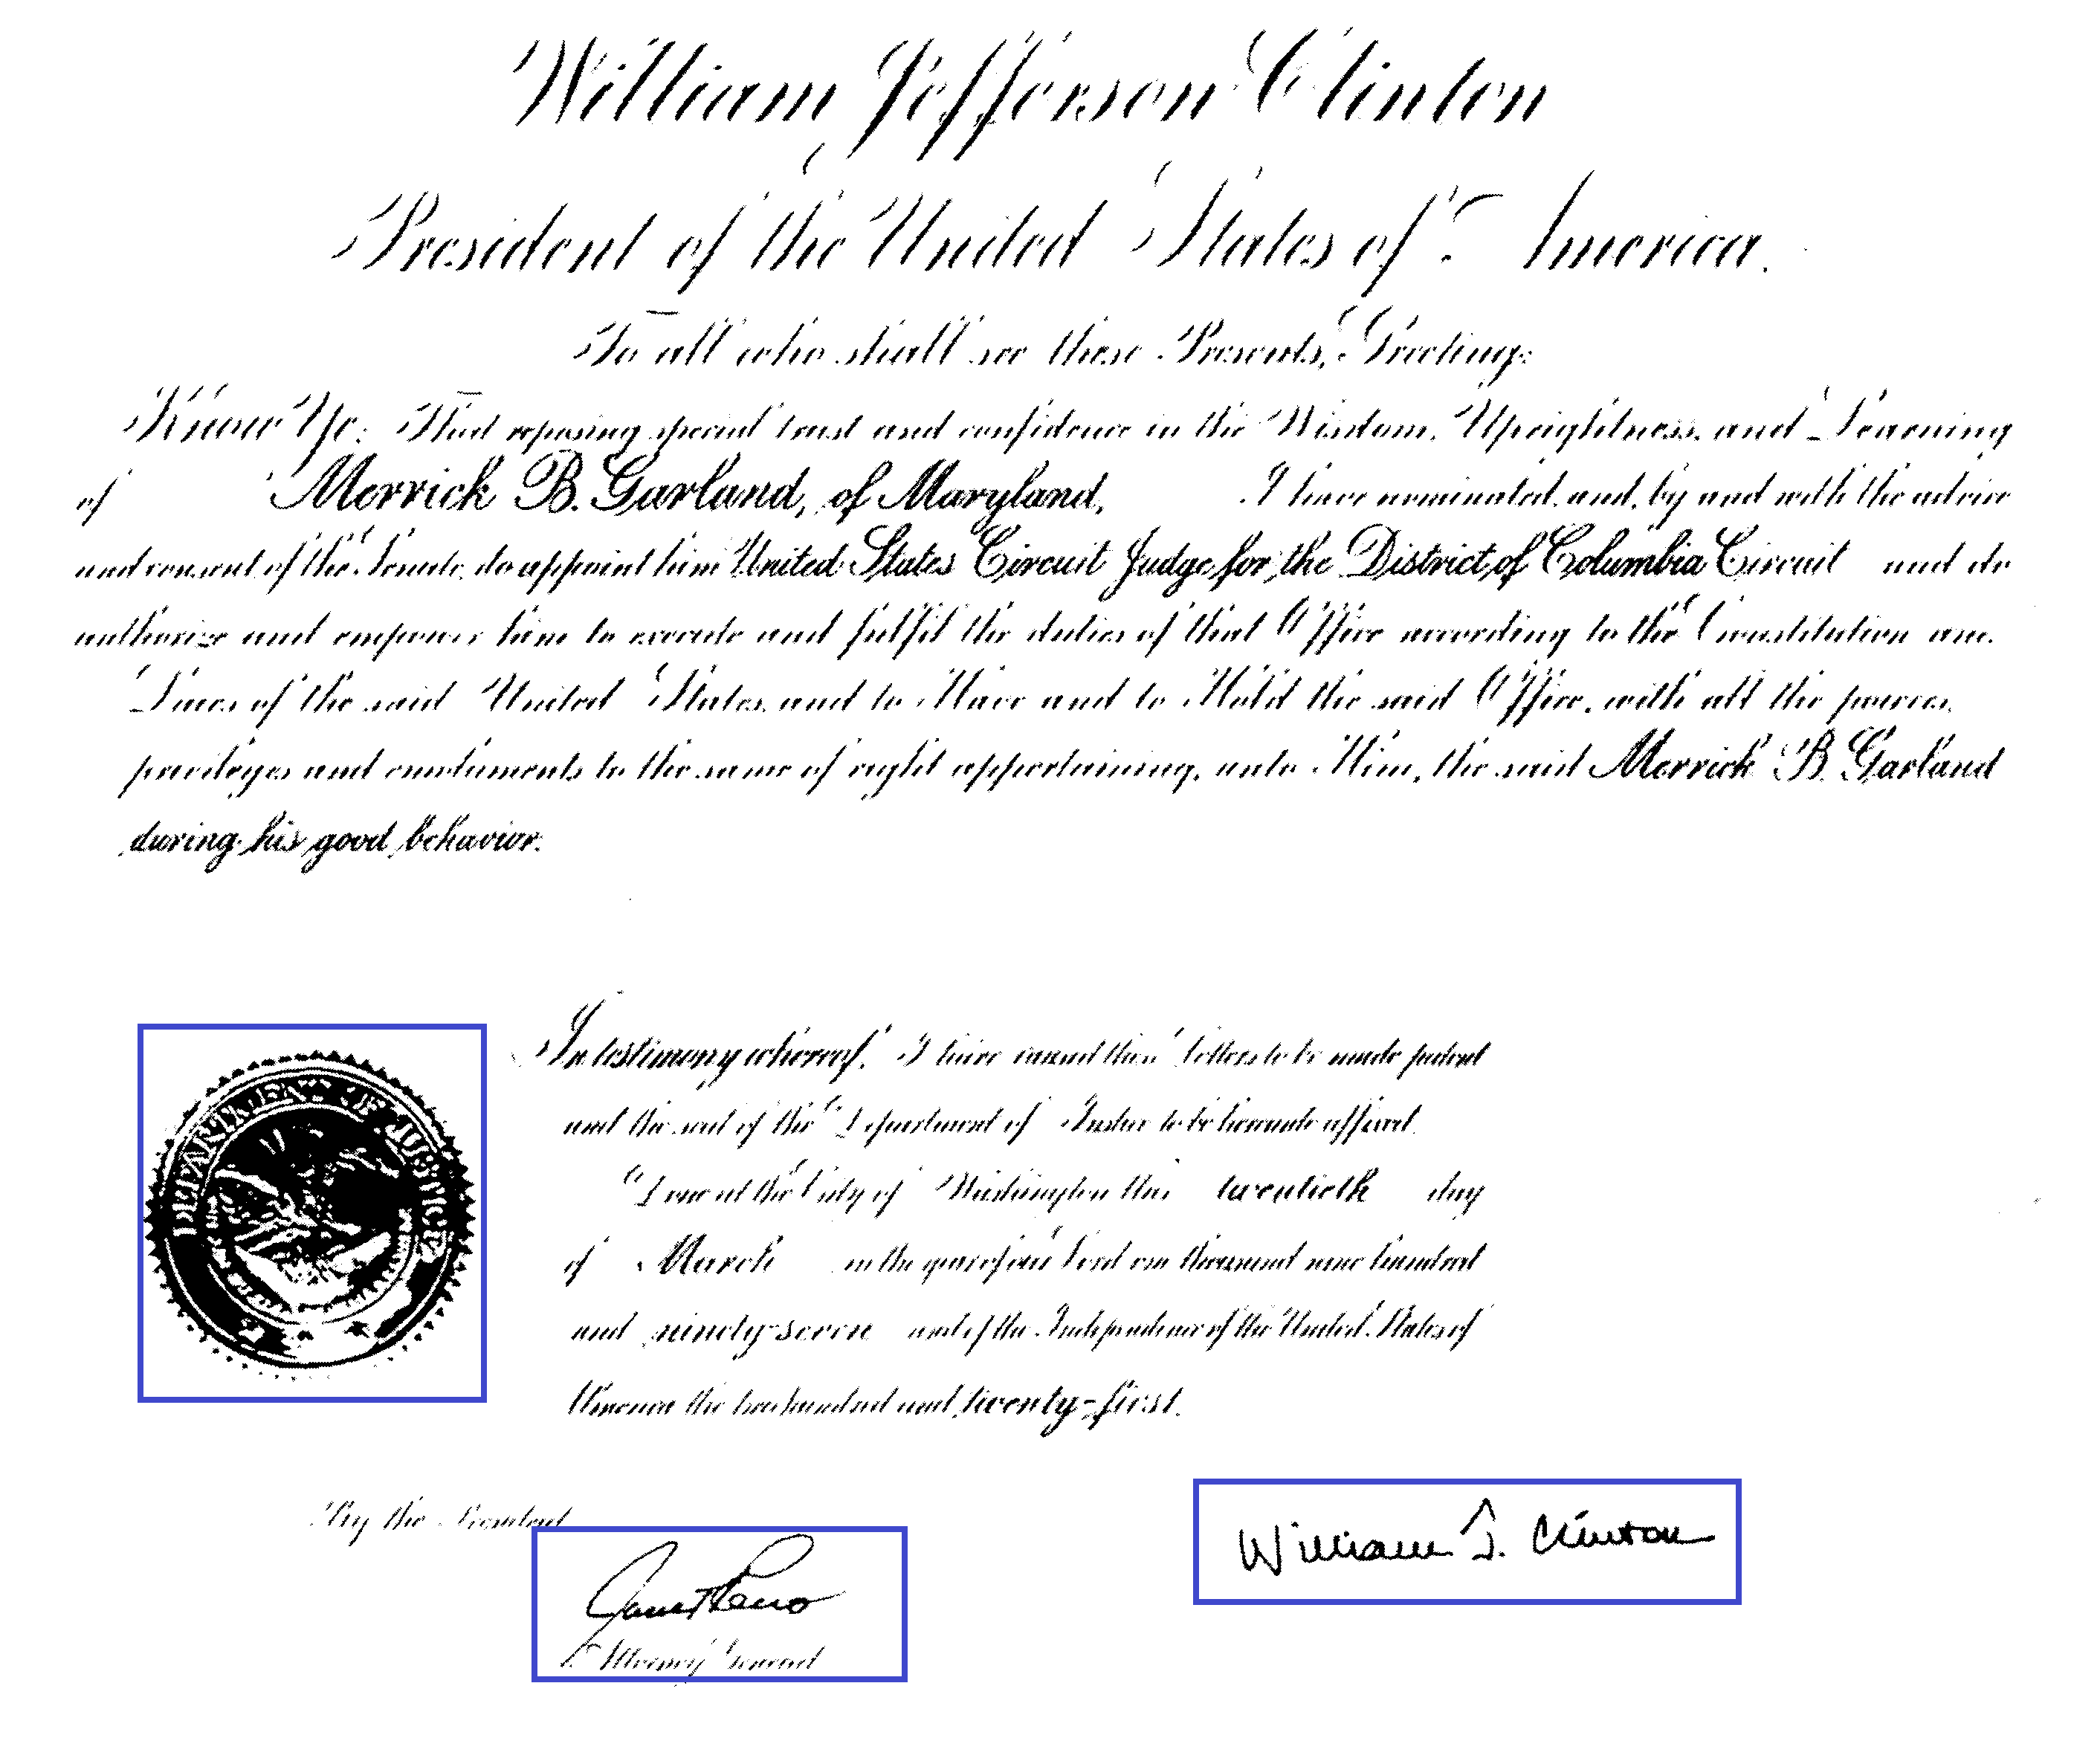 William Jefferson Clinton
President of the United States of America.
To all who shall see these Presents, Greeting:
Know Ye: That reposing special trust and confidence in the Wisdom, Uprightness, and Learning
of Merrick B. Garland, of Maryland, I have nominated, and, by and with the advice
and consent of the Senate, do appoint him United States Circuit Judge for the District of Columbia Circuit and do
authorize and empower him to execute and fulfil the duties of that Office according to the Constitution and
Laws of the said United States, and to Have and to Hold the said Office, with all the powers,
privileges and emoluments to the same of right appertaining, unto Him, the said Merrick B. Garland
during his good behavior.
In testimony whereof, I have caused these letters to be made patent
and the seal of the Department of Justice to be hereunto affixed.
DEPARTMENT OF JUSTICE
Done at the City of Washington this twentieth day
of March in the year of our Lord one thousand nine hundred
and ninety-seven and of the Independence of the United States of
America the two hundred and twenty-first.
By the President
William J. Clinton
Janet Reno
Attorney General